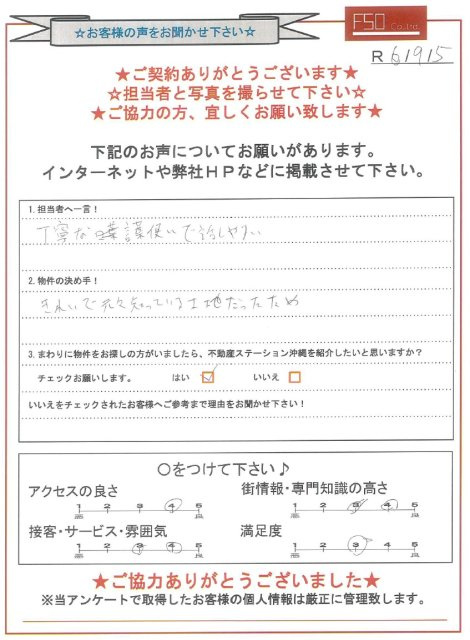 ☆お客様の声をお聞かせ下さい☆
FSO Co.,Ltd.
R 6/9/15
★ご契約ありがとうございます★
☆担当者と写真を撮らせて下さい☆
★ご協力の方、宜しくお願い致します★
下記のお声についてお願いがあります。
インターネットや弊社ＨＰなどに掲載させて下さい。
1. 担当者へ一言！
丁寧な言葉使いで話しやすい
2. 物件の決め手！
きれいで元々知っている土地だったため
3. まわりに物件をお探しの方がいましたら、不動産ステーション沖縄を紹介したいと思いますか？
チェックお願いします。 はい ☑ いいえ □
いいえをチェックされたお客様へご参考まで理由をお聞かせ下さい！
〇をつけて下さい♪
アクセスの良さ 街情報・専門知識の高さ
1 2 3 4 5 1 2 3 4 5
悪 良 悪 良
接客・サービス・雰囲気 満足度
1 2 3 4 5 1 2 3 4 5
悪 良 悪 良
★ご協力ありがとうございました★
※当アンケートで取得したお客様の個人情報は厳正に管理致します。